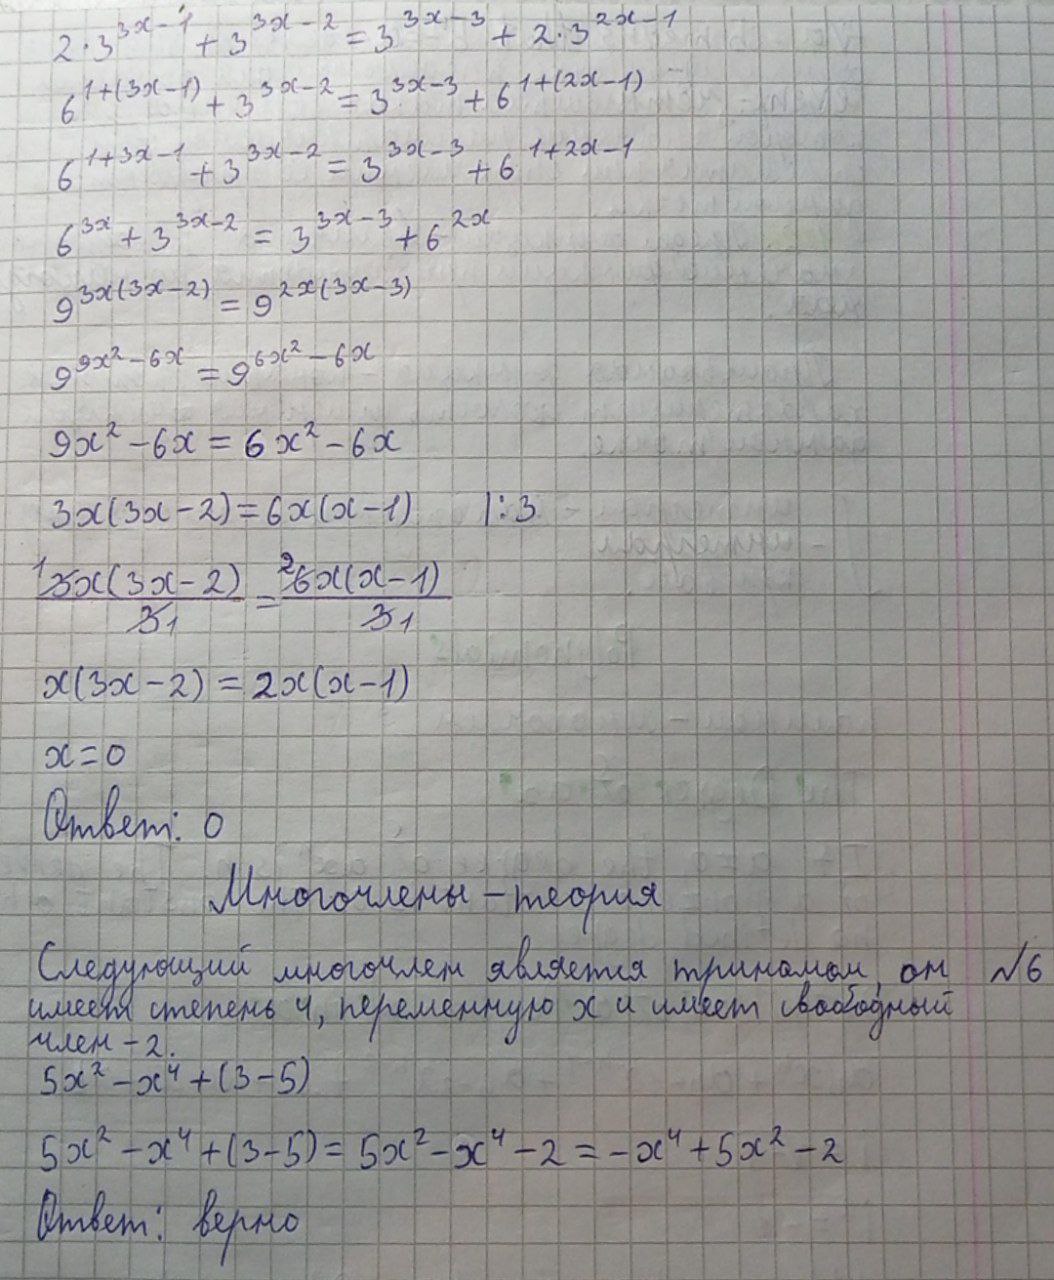 2·3^{3x-1} + 3^{3x-2} = 3^{3x-3} + 2·3^{2x-1}
6^{1+(3x-1)} + 3^{3x-2} = 3^{3x-3} + 6^{1+(2x-1)}
6^{1+3x-1} + 3^{3x-2} = 3^{3x-3} + 6^{1+2x-1}
6^{3x} + 3^{3x-2} = 3^{3x-3} + 6^{2x}
9^{3x(3x-2)} = 9^{2x(3x-3)}
9^{9x²-6x} = 9^{6x²-6x}
9x² - 6x = 6x² - 6x
3x(3x-2) = 6x(x-1) |:3
¹3x(3x-2)/3₁ = ²6x(x-1)/3₁
x(3x-2) = 2x(x-1)
x=0
Ответ: 0
Многочлены - теория
Следующий многочлен является триномом, он №6
имеет степень 4, переменную x и имеет свободный
член -2.
5x² - x⁴ + (3-5)
5x² - x⁴ + (3-5) = 5x² - x⁴ - 2 = -x⁴ + 5x² - 2
Ответ: верно